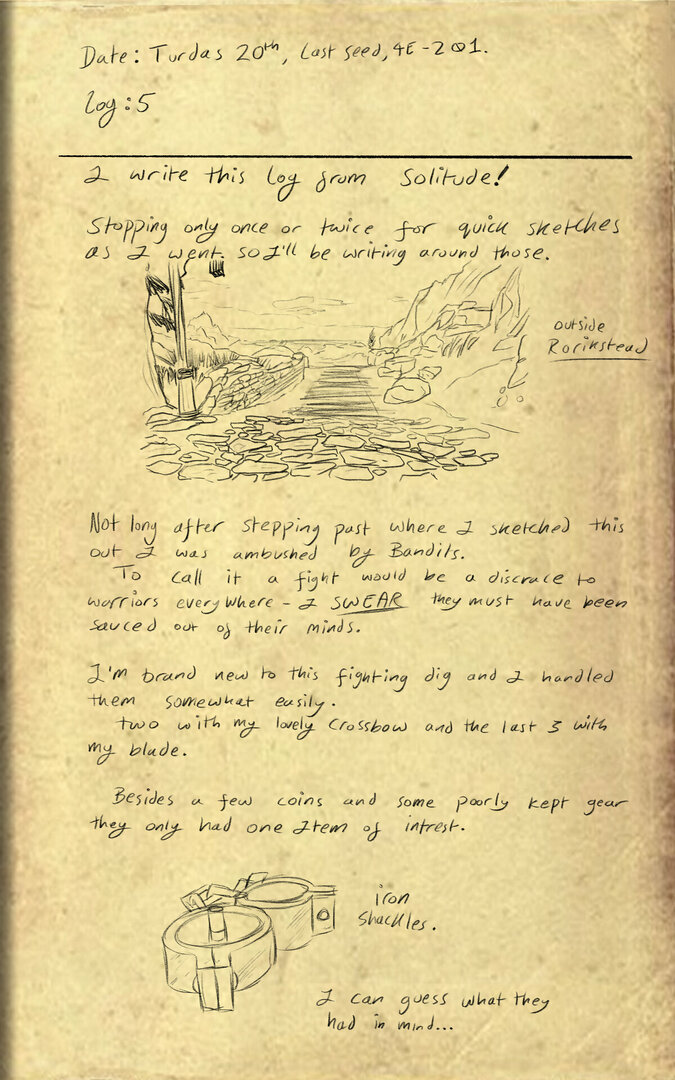 Date: Turdas 20th, Last seed, 4E-201.
Log: 5
I write this log from Solitude!
Stopping only once or twice for quick sketches
as I went. so I'll be writing around those.
outside
Rorikstead
Not long after stepping past where I sketched this
out I was ambushed by Bandits.
To call it a fight would be a discrace to
warriors everywhere - I SWEAR they must have been
sauced out of their minds.
I'm brand new to this fighting dig and I handled
them somewhat easily.
two with my lovely Crossbow and the last 3 with
my blade.
Besides a few coins and some poorly kept gear
they only had one Item of intrest.
iron
shackles.
I can guess what they
had in mind...